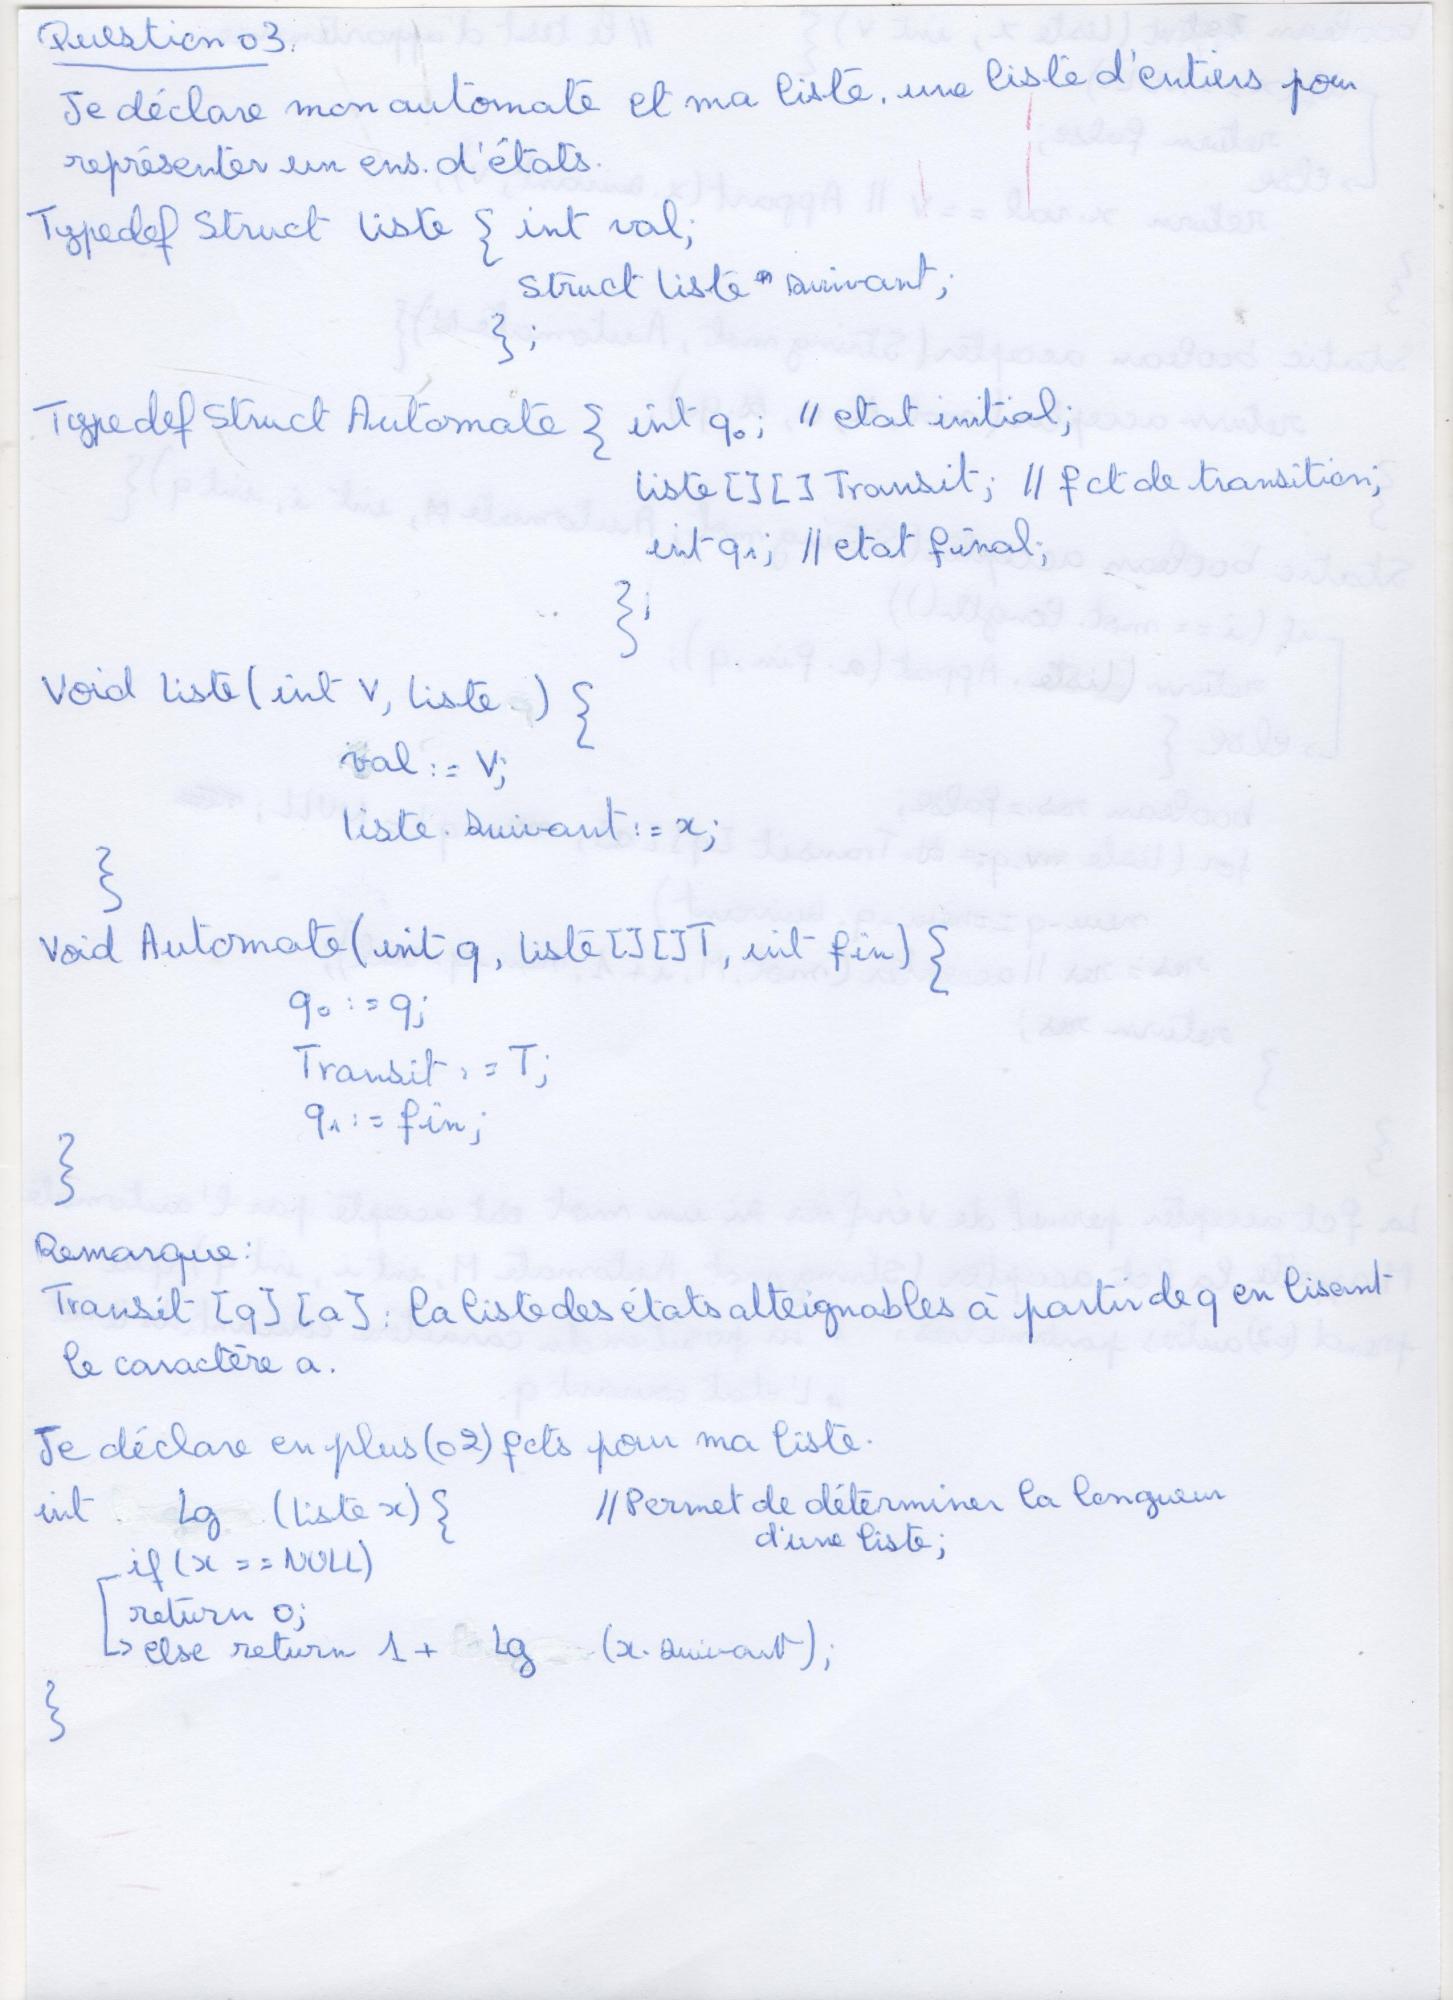 Question 03.
Je déclare mon automate et ma liste. une liste d'entiers pour
représenter un ens. d'états.
Typedef Struct Liste { int val;
struct liste * suivant;
};
Typedef Struct Automate { int q0; // etat initial;
liste [][] Transit; // fct de transition;
int q1; // etat final;
};
Void Liste (int V, liste ) {
val := V;
liste. suivant := x;
}
Void Automate (int q, liste [][] T, int fin) {
q0 := q;
Transit := T;
q1 := fin;
}
Remarque:
Transit [q] [a] : la liste des états atteignables à partir de q en lisant
le caractère a.
Je déclare en plus (02) fcts pour ma liste.
int Lg (liste x) { // Permet de déterminer la longueur
d'une liste;
if (x == NULL)
return 0;
else return 1 + Lg (x. suivant);
}